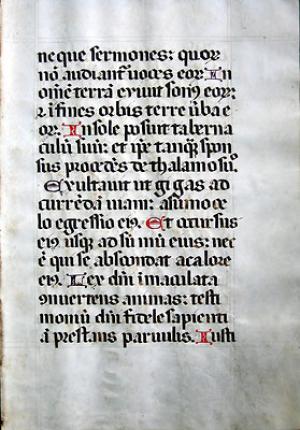 neque sermones: quor
nō audiant᷑ voces eor᷑ In
omnē terrā exivit sonꝰ eor᷑:
⁊ i fines orbis terre v̄ba e
or᷑. In sole posuit taberna
culū suū: et ip̄e tanq̄ꝫ spon
sus procedēs de thalamo suo.
Exultavit ut gigas ad
currēdā viam: a sūmo ce
lo egressio eiꝰ. Et occursus
eiꝰ usqꝫ ad sūmū eius: nec
ē qui se abscondat a calore
eiꝰ. Lex dn̄i imaculata
ꝯvertens animas: testi
moniū dn̄i fidele sapienti
ā prestans parvulis. Iusti